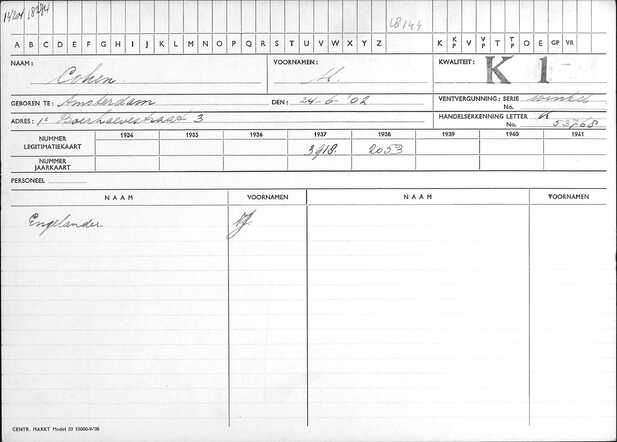 14204 18294
L8144
A B C D E F G H I J K L M N O P Q R S T U V W X Y Z K KP V VP T TP O E GP VR
NAAM: Cohen VOORNAMEN: M. KWALITEIT: K 1 -
GEBOREN TE: Amsterdam DEN: 24-6-'02 VENTVERGUNNING: SERIE winkel
No.
ADRES: 1e Boerhaavestraat 3 HANDELSERKENNING LETTER K
No. 53768
NUMMER LEGITIMATIEKAART 1934 1935 1936 1937 1938 1939 1940 1941
3918 2053
NUMMER JAARKAART
PERSONEEL
NAAM VOORNAMEN NAAM VOORNAMEN
Engelander
CENTR. MARKT Model 59 15000-V-'38